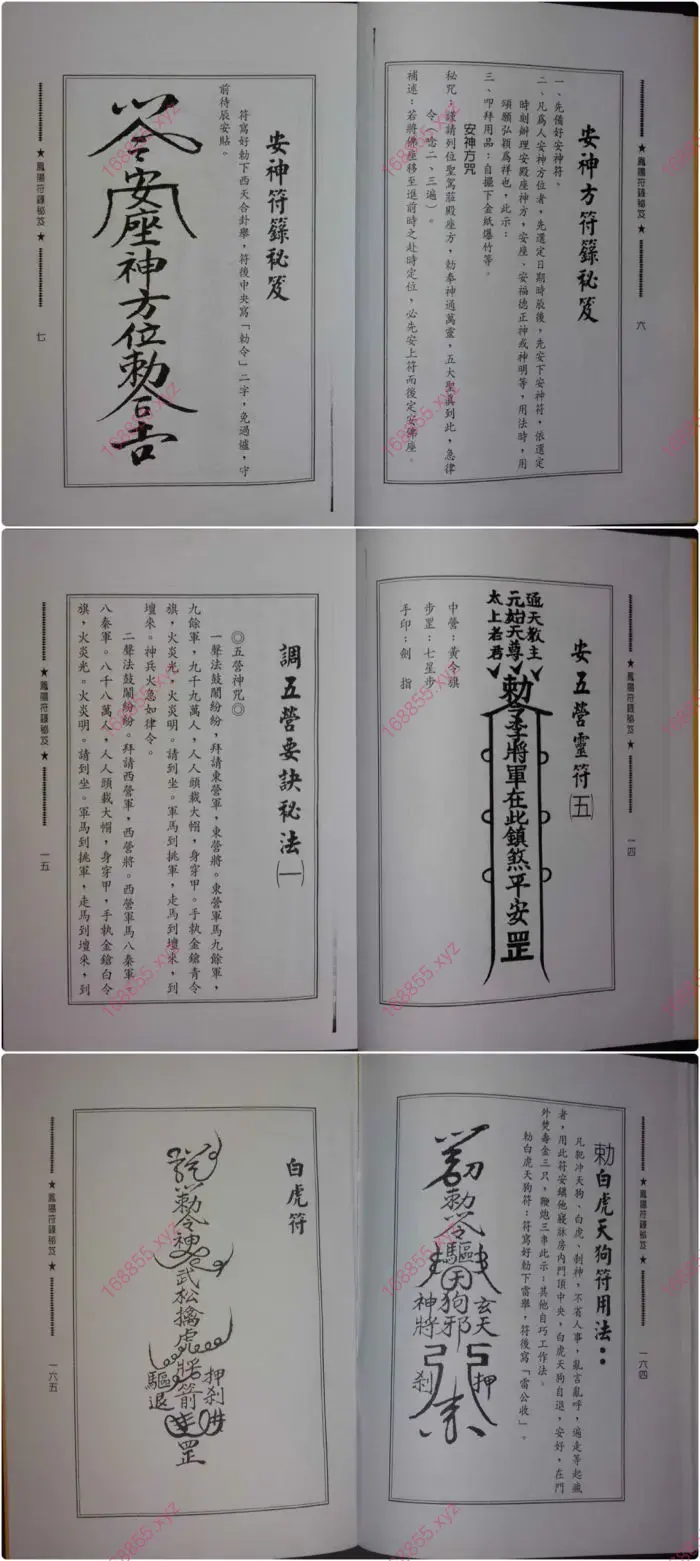 安神方符籙秘笈
一、先備好安神符、
二、凡爲人安神方位者，先選定日期時辰後，先安下安神符，依選定
時刻辦理安殿座神方，安座、安福德正神或神明等，用法時，用
須願弘穎爲祥也，此示：
三、叩拜用品：自撮下金紙爆竹等。
安神方咒
秘咒：謹請列位聖駕莊殿座方，勅奉神通萬靈，五大聖眞到此，急律
令（唸二、三遍）。
補述：若將佛座移至進前時之赴時定位，必先安上符而後定安佛座。
★鳳陽符籙秘笈★
六
安神符籙秘笈
符寫好勅下西天合卦舉，符後中央寫「勅令」二字，免過爐，守
前待辰安貼。
安座神方位勅令吉
★鳳陽符籙秘笈★
七
安五營靈符(五)
通天教主
元始天尊
太上老君
勅令李將軍在此鎮煞平安罡
中營：黃令旗
步罡：七星步
手印：劍指
★鳳陽符籙秘笈★
一四
調五營要訣秘法(一)
◎五營神咒◎
一聲法鼓鬧紛紛，拜請東營軍，東營將。東營軍馬九餘軍，
九餘軍，九千九萬人，人人頭載大帽，身穿甲。手執金鎗青令
旗，火炎光，火炎明。請到坐。軍馬到挑軍，走馬到壇來，到
壇來。神兵火急如律令。
二聲法鼓鬧紛紛。拜請西營軍，西營將。西營軍馬八秦軍，
八秦軍。八千八萬人，人人頭載大帽，身穿甲，手執金鎗白令
旗，火炎光。火炎明。請到坐。軍馬到挑軍，走馬到壇來，到
★鳳陽符籙秘笈★
一五
勅白虎天狗符用法：
凡犯冲天狗、白虎、刣神，不省人事，亂言亂呼，遍走等起癲
者，用此符安鎮他寢牀房內門頂中央，白虎天狗自退，安好，在門
外焚壽金三只，鞭炮三串此示：其他自巧工作法。
勅白虎天狗符：符寫好勅下雷舉，符後寫「雷公收」。
勅令驅天狗邪
玄天
神將
押
刹
★鳳陽符籙秘笈★
一六四
白虎符
勅令神武松擒虎將箭
押刹
驅退
罡
★鳳陽符籙秘笈★
一六五
168855.xyz